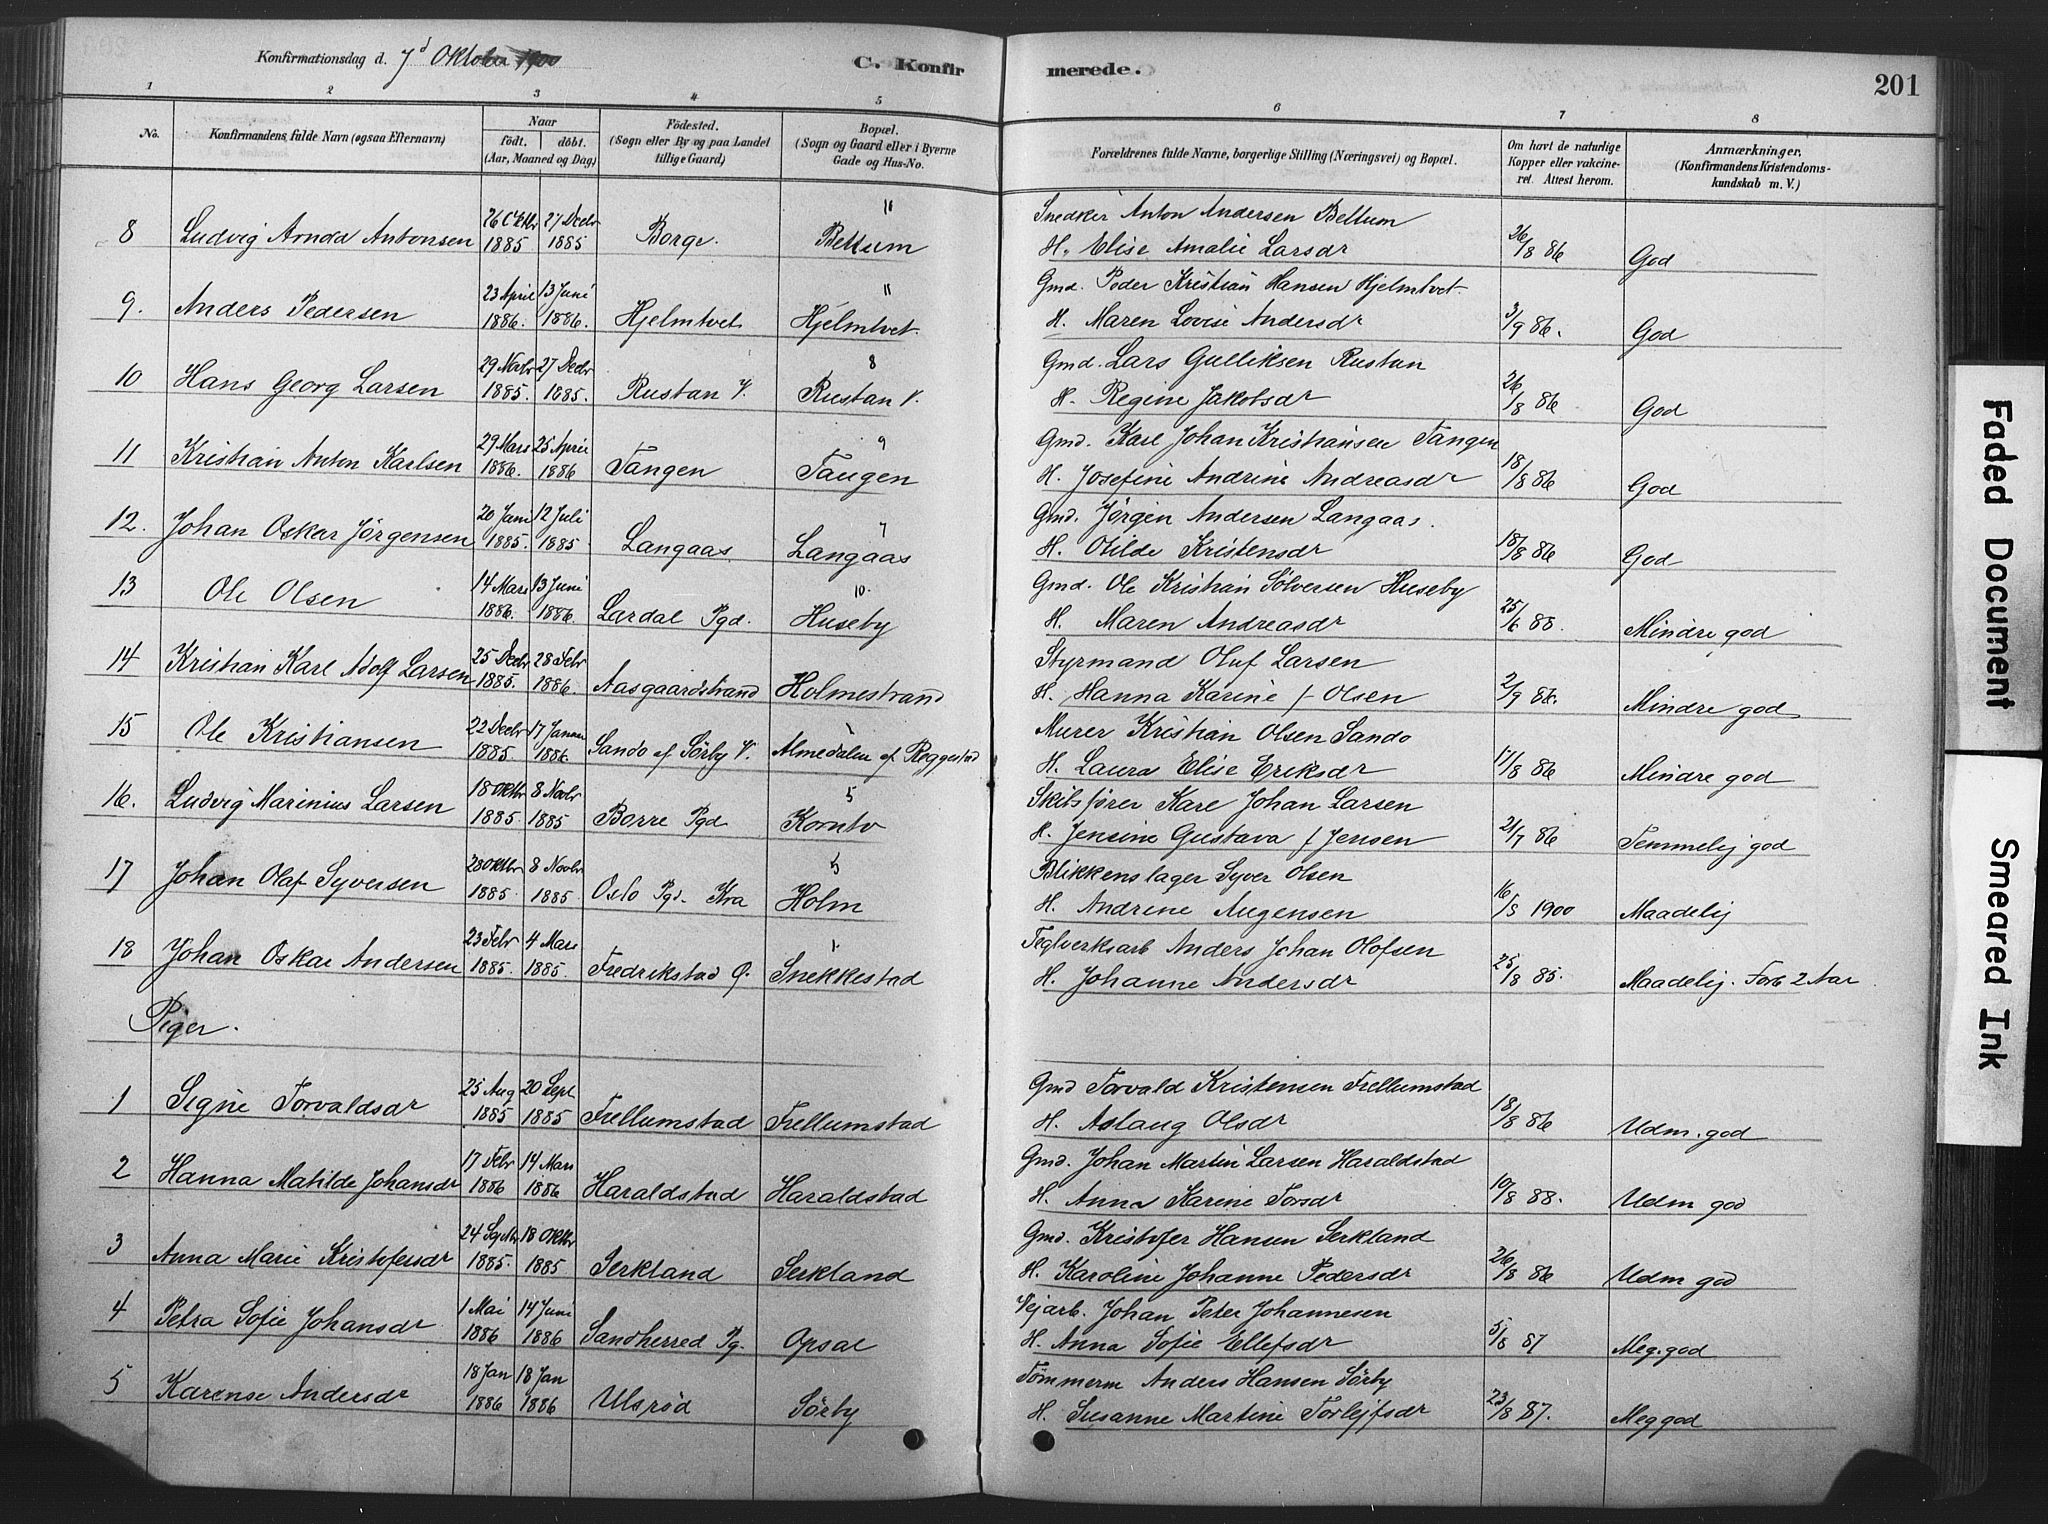 Konfirmationsdag d. 7d Oktober 1900
C. Konfirmerede.
201
1 2 3 4 5 6 7 8
No.
Konfirmandens fulde Navn (ogsaa Efternavn)
Naar
födt. döbt.
(Aar, Maaned og Dag)
Födested.
(Sogn eller By og paa Landet
tillige Gaard)
Bopæl.
(Sogn og Gaard eller i Byerne
Gade og Hus-No.
Forældrenes fulde Navne, borgerlige Stilling (Næringsvei) og Bopæl.
Om havt de naturlige
Kopper eller vakcine-
ret. Attest herom.
Anmærkninger.
(Konfirmandens Kristendoms-
kundskab m. V.)
26 Oktbr 27 Decbr 10 Snedker Anton Andersen Bettum
8 Ludvig Arnold Antonsen 1885 1885 Borge. Bettum H. Elise Amalie Larsdr 26/8 86 God
23 April 13 Juni 11 Gmd. Peder Kristian Hansen Hjelmtvet.
9. Anders Pedersen 1886. 1886. Hjelmtvet Hjelmtvet. H. Maren Lovise Andersdr 3/9 86. God
29 Novbr 27 Decbr 8 Gmd. Lars Gulliksen Rustan
10 Hans Georg Larsen 1885. 1885. Rustan V. Rustan V. H. Regine Jakobsdr 26/8 86 God
29 Mars 25 April 9 Gmd. Karl Johan Kristiansen Tangen
11 Kristian Anton Karlsen 1886. 1886 Tangen Tangen H. Josefine Andrine Andreasdr 18/8 86 God
20 Juni 12 Juli 7 Gmd. Jörgen Andersen Langaas.
12. Johan Oskar Jörgensen 1885. 1885 Langaas Langaas H. Otilde Kristensdr 18/8 86 God
14 Mars 13 Juni 10. Gmd. Ole Kristian Sölversen Huseby
13 Ole Olsen 1886. 1886. Lardal Pgd. Huseby H. Maren Andreasdr 25/6 88. Mindre god
25 Decbr 28 Febr Styrmand Oluf Larsen
14 Kristian Karl Adolf Larsen 1885. 1886. Aasgaardstrand Holmestrand H. Hanna Karine f. Olsen 2/9 86. Mindre god
22 Decbr 17 Januar 5 Murer Kristian Olsen Sando
15 Ole Kristiansen 1885. 1886. Sando af Sörby V. Almedalen af Reggestad H. Laura Elise Eriksdr 17/8 86 Mindre god
18 Oktbr 8 Novbr 5 Skibsförer Karl Johan Larsen
16. Ludvig Marinius Larsen 1885. 1885 Borre Pgd Korntv H. Jensine Gustava f Jensen 21/7 86 Temmelig god
28 Oktbr 8 Novbr 5 Blikkenslager Syver Olsen
17 Johan Olaf Syversen 1885. 1885. Oslo Pgd. Kra Holm H. Andrine Augensen 16/5 1900 Maadelig
23 Febr 4 Mars 1. Teglverksarb Anders Johan Olofsen
18 Johan Oskar Andersen 1885. 1885. Fredrikstad Ö. Snekkestad H. Johanne Andersdr 25/8 85. Maadelig. Forb 2 Aar
Piger.
25 Aug 20 Sept Gmd Torvald Kristensen Frellumstad
1 Signe Torvaldsdr 1885 1885 Frellumstad Frellumstad H. Aslaug Olsdr 18/8 86 Udm. god
17 Febr 14 Mars Gmd. Johan Martin Larsen Haraldstad
2 Hanna Matilde Johansdr 1886 1886 Haraldstad Haraldstad H. Anna Karine Torsdr 10/8 88. Udm god
24 Septbr 18 Oktbr Gmd. Kristofer Hansen Serkland
3 Anna Marie Kristofersdr 1885. 1885 Serkland Serkland H. Karoline Johanne Pedersdr 26/8 86 Udm god
1 Mai 14 Juni Vejarb. Johan Peter Johannesen
4 Petra Sofie Johansdr 1886 1886 Sandherred Pg. Opsal H. Anna Sofie Ellefsdr 5/8 87 Meg. god
18 Jan 18 Jan Tömmerm Anders Hansen Sörby
5 Karense Andersdr 1886 1886 Ulsröd Sörby H. Susanne Martine Torlejfsdr 23/8 87. Meg god
Faded Document
Smeared Ink